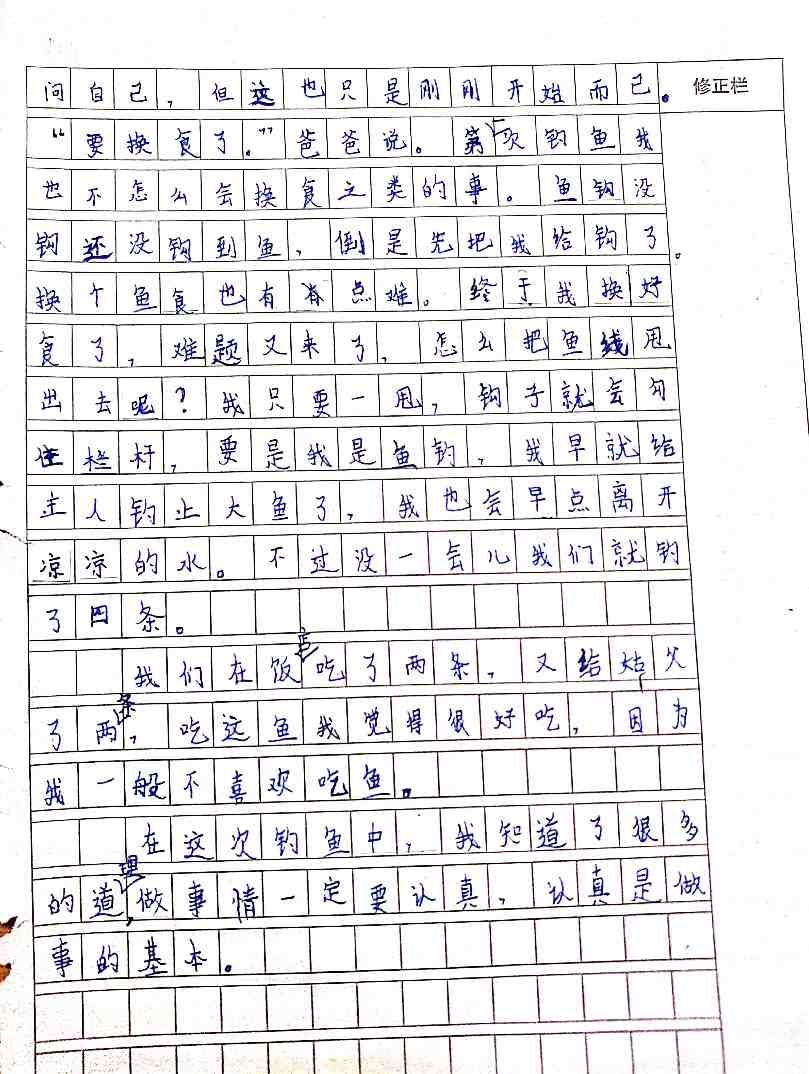 问自己，但这也只是刚刚开始而已。 修正栏
“要换食了。”爸爸说。第一次钓鱼我
也不怎么会换食之类的事。鱼钩没
钩还没钩到鱼，倒是先把我给钩了。
换个鱼食也有点难。终于我换好
食了，难题又来了，怎么把鱼线甩
出去呢？我只要一甩，钩子就会勾
住栏杆，要是我是鱼钓，我早就给
主人钓上大鱼了，我也会早点离开
凉凉的水。不过没一会儿我们就钓
了四条。
我们在饭店吃了两条，又给姑父
了两条，吃这鱼我觉得很好吃，因为
我一般不喜欢吃鱼。
在这次钓鱼中，我知道了很多
的道理，做事情一定要认真，认真是做
事的基本。